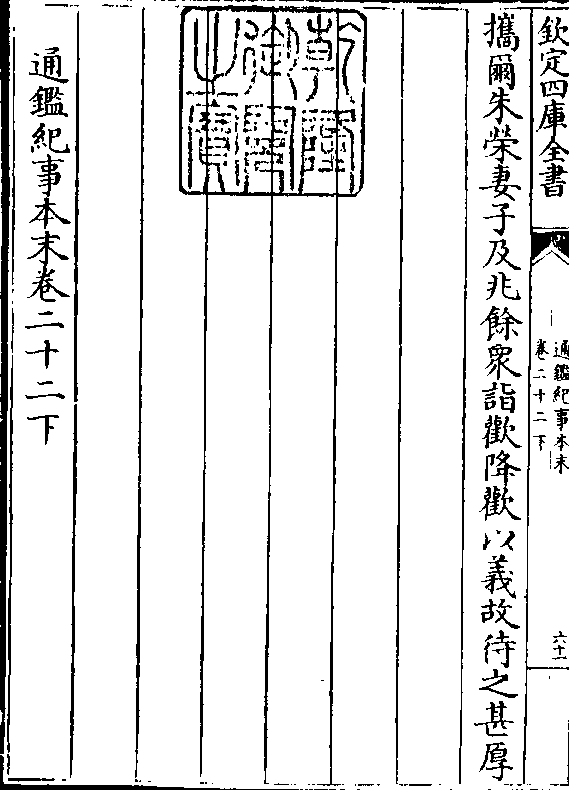 欽定四庫全書
通鑑紀事本末
卷二十二下
六十一
攜爾朱榮妻子及兆餘衆詣歡降歡以義故待之甚厚
乾隆御覽之寶
通鑑紀事本末卷二十二下